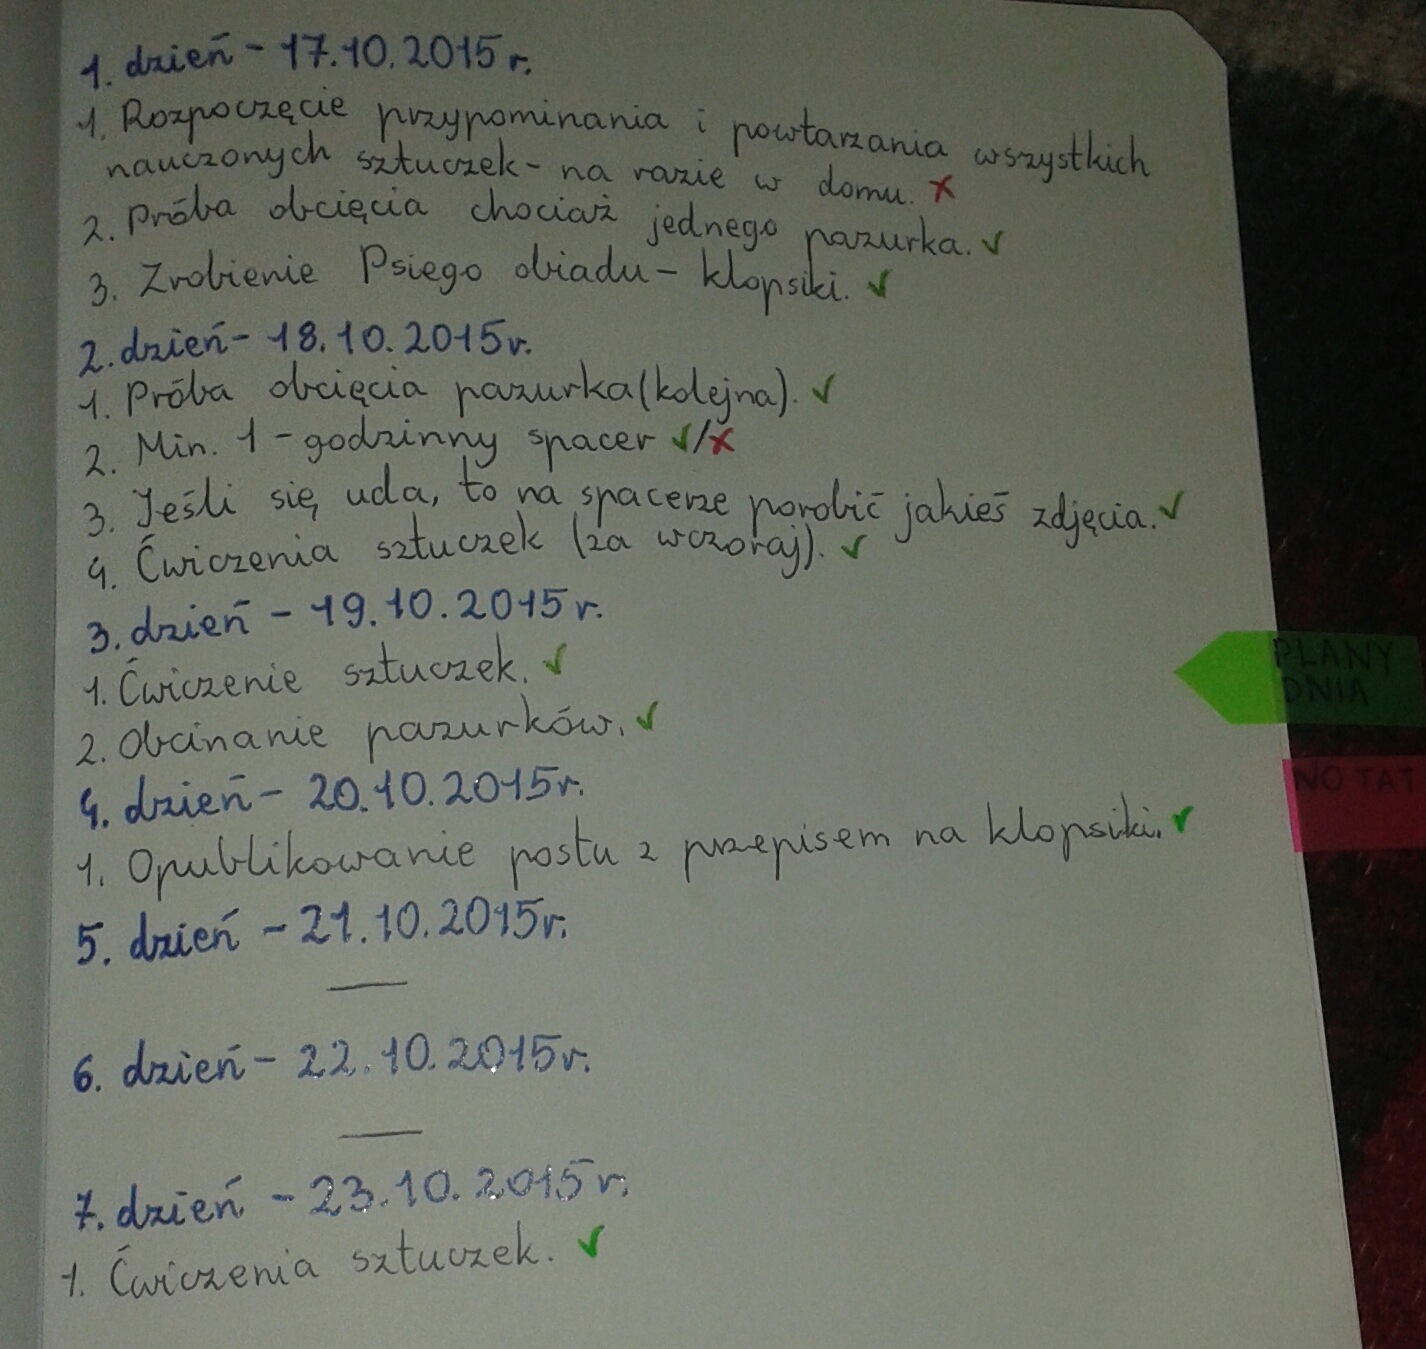 1. dzień - 17.10.2015 r.
1. Rozpoczęcie przypominania i powtarzania wszystkich
nauczonych sztuczek - na razie w domu. ✗
2. Próba obcięcia chociaż jednego pazurka. ✓
3. Zrobienie Psiego obiadu - klopsiki. ✓
2. dzień - 18.10.2015r.
1. Próba obcięcia pazurka (kolejna). ✓
2. Min. 1 - godzinny spacer ✓/✗
3. Jeśli się uda, to na spacerze porobić jakieś zdjęcia. ✓
4. Ćwiczenia sztuczek (za wczoraj). ✓
3. dzień - 19.10.2015 r.
1. Ćwiczenie sztuczek. ✓
2. Obcinanie pazurków. ✓
4. dzień - 20.10.2015r.
1. Opublikowanie postu z przepisem na klopsiki. ✓
5. dzień - 21.10.2015r.
—
6. dzień - 22.10.2015r.
—
7. dzień - 23.10.2015 r.
1. Ćwiczenia sztuczek. ✓
PLANY
DNIA
NOTAT